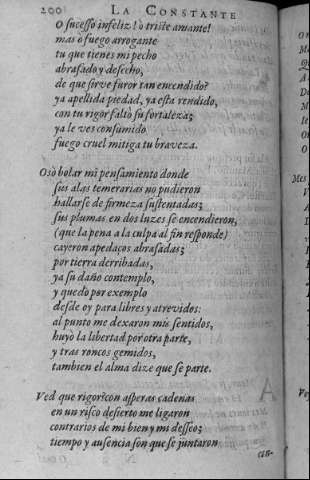 200 LA CONSTANTE
O sucesso infeliz! ò triste amante!
mas ò fuego arrogante
tu que tienes mi pecho
abrasado y desecho,
de que sirve furor tan encendido?
ya apellida piedad, ya esta rendido,
con tu rigor faltò su fortaleza;
ya le ves consumido
fuego cruel mitiga tu braveza.
Osò bolar mi pensamiento donde
sus alas temerarias no pudieron
hallarse de firmeza sustentadas;
sus plumas en dos luzes se encendieron,
(que la pena a la culpa al fin responde)
cayeron apedaços abrasadas;
por tierra derribadas,
ya su daño contemplo,
y quedò por exemplo
desde oy para libres y atrevidos:
al punto me dexaron mis sentidos,
huyò la libertad por otra parte,
y tras roncos gemidos,
tambien el alma dize que se parte.
Ved que rigor! con asperas cadenas
en un risco desierto me ligaron
contrarios de mi bien y mi desseo;
tiempo y ausencia son que se juntaron